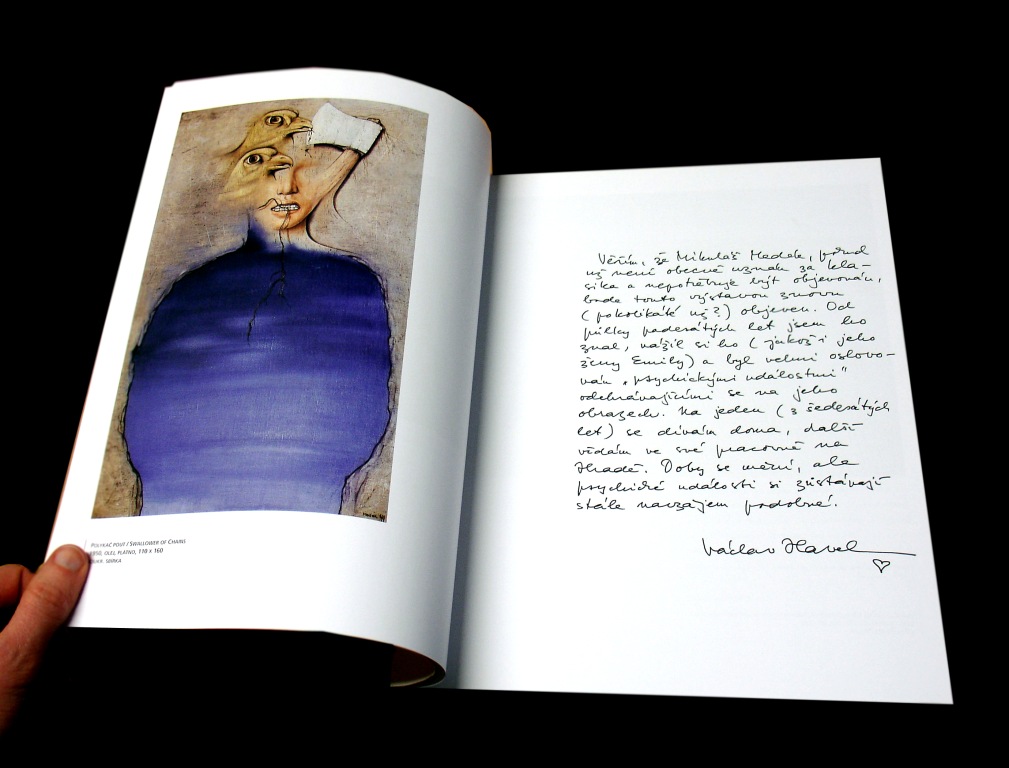 POLYKAČ POUT / SWALLOWER OF CHAINS
1950, OLEJ, PLÁTNO, 110 x 160
SOUKR. SBÍRKA
Věřím, že Mikuláš Medek, pokud
už není obecně uznán za kla-
sika a nepotřebuje být objevován,
bude touto výstavou znovu
(pokolikáté už?) objeven. Od
půlky padesátých let jsem ho
znal, vážil si ho (jakož i jeho
ženy Emily) a byl velmi oslovo-
ván „psychickými událostmi"
odehrávajícími se na jeho
obrazech. Na jeden (z šedesátých
let) se dívám doma, další
vídám ve své pracovně na
Hradě. Doby se mění, ale
psychické události si zůstávají
stále navzájem podobné!
Václav Havel